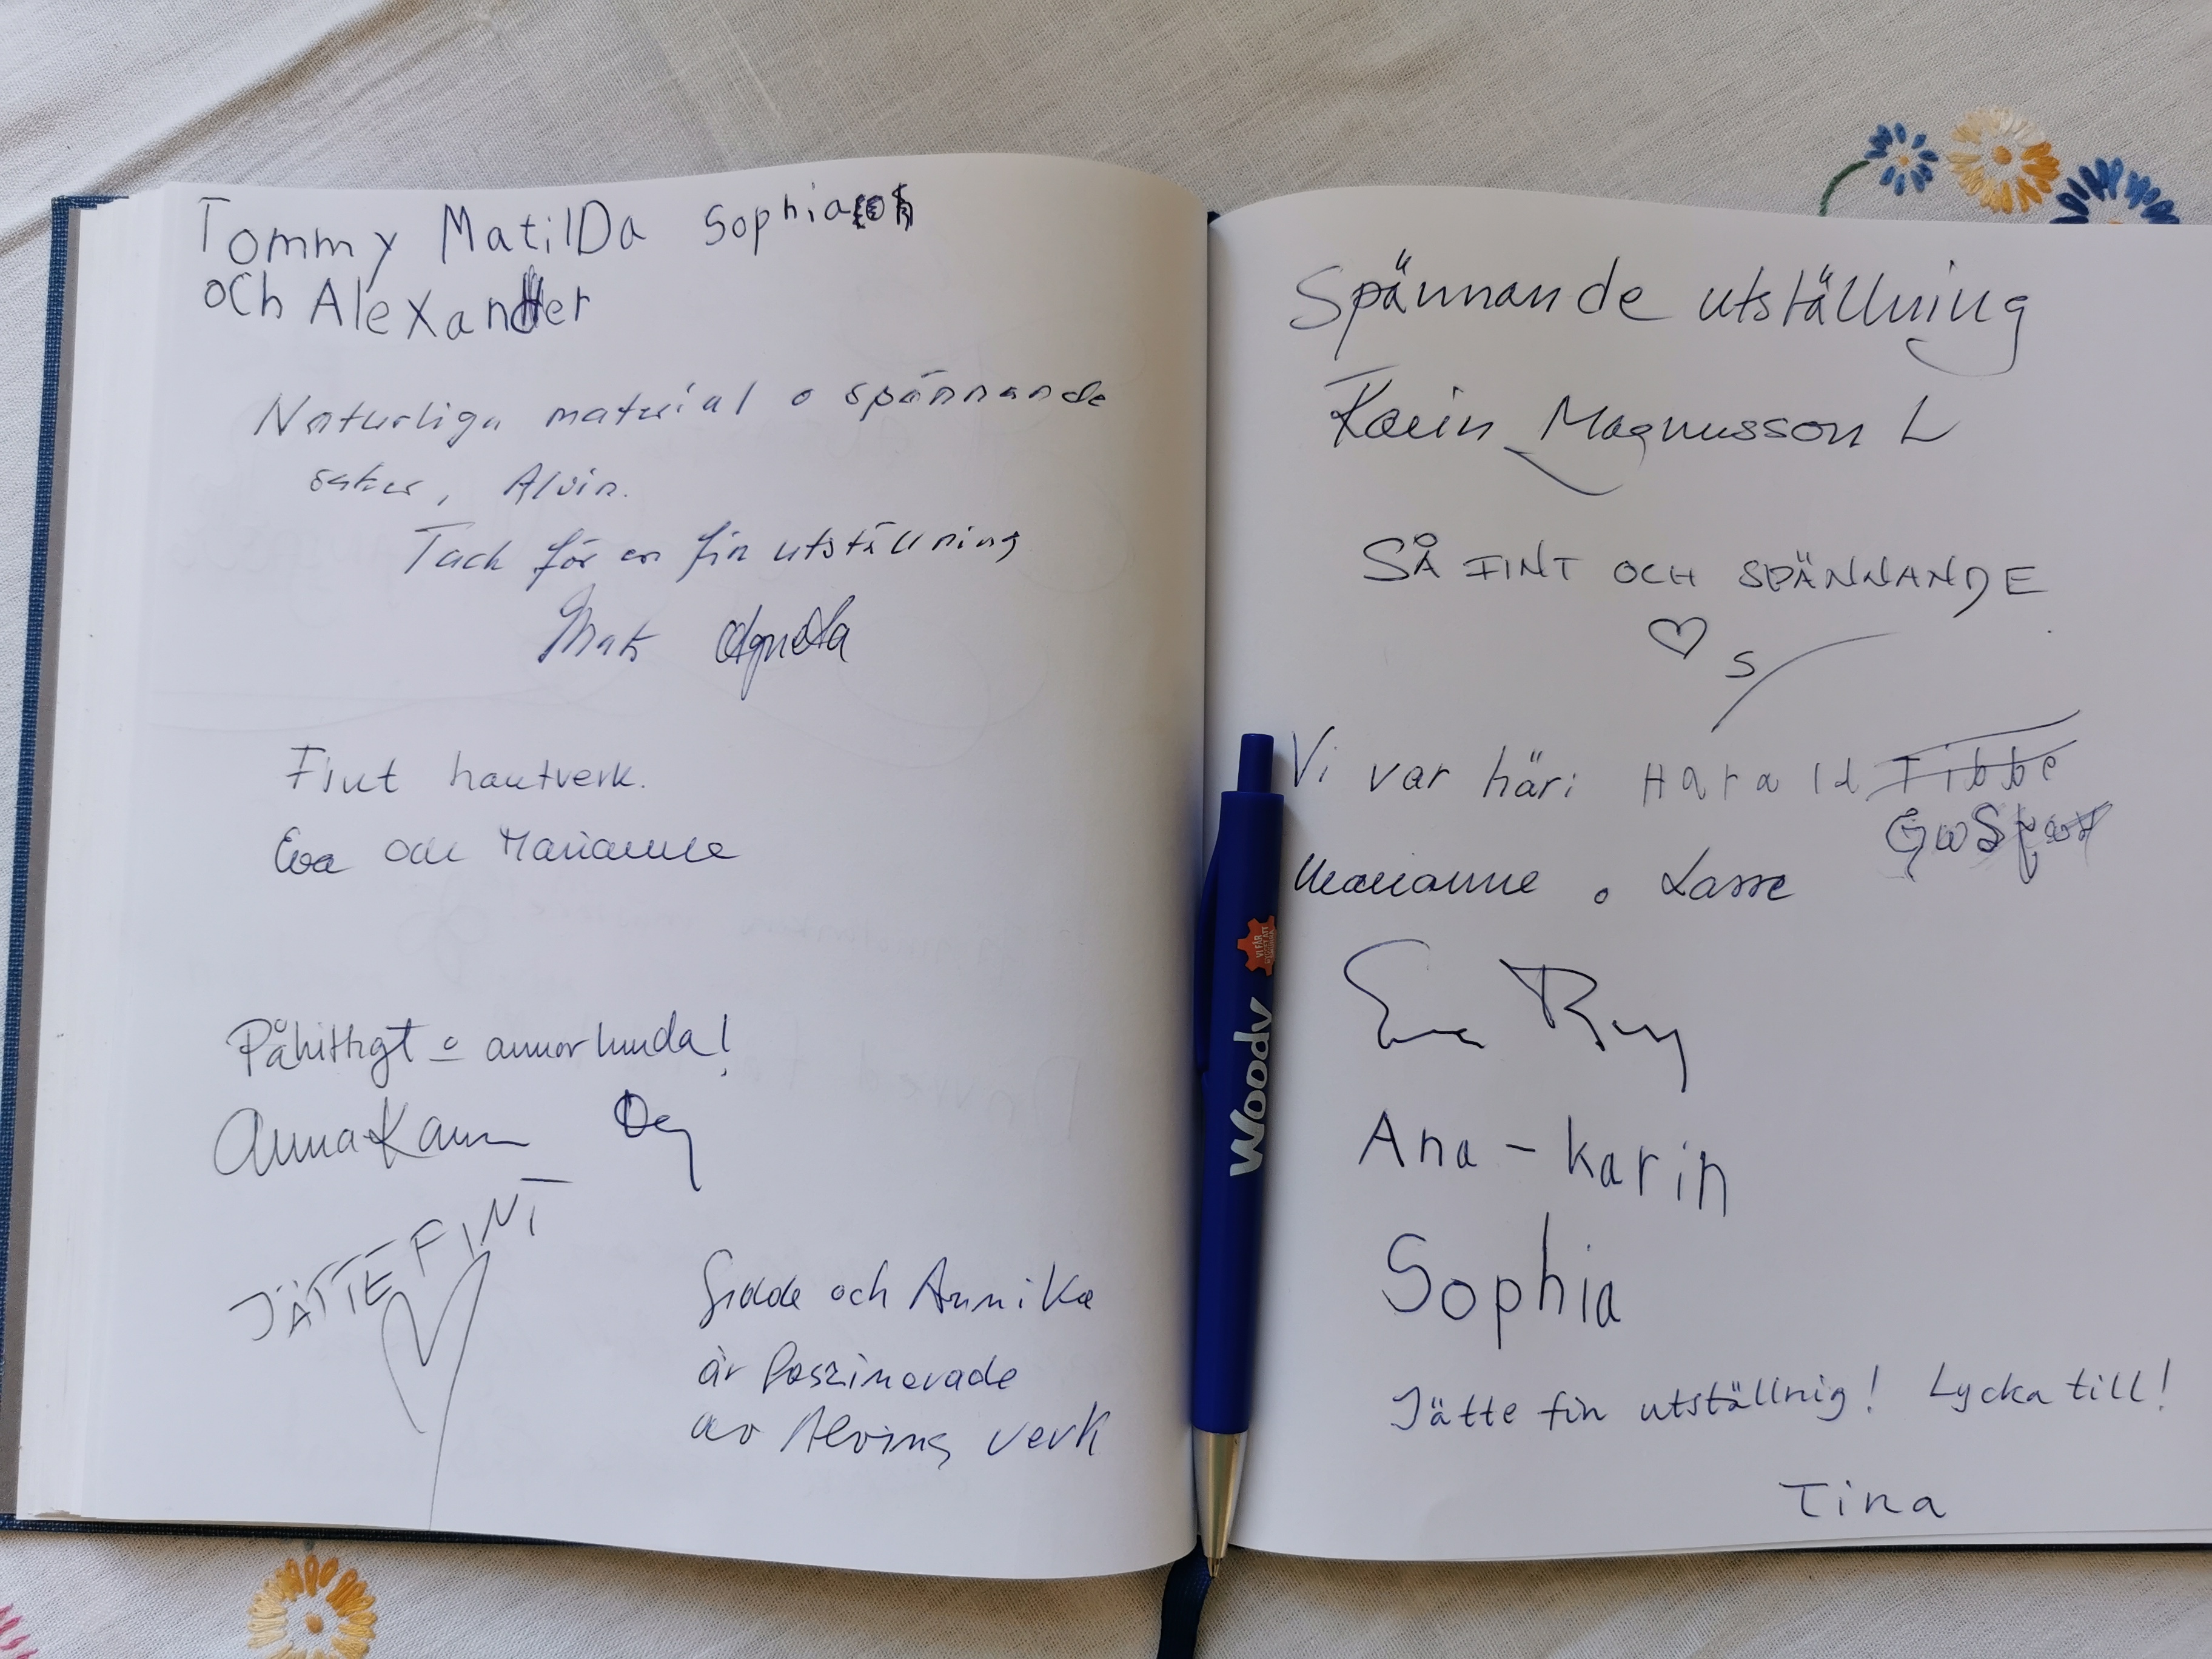 Tommy MatilDa Sophia
och Alexander
Naturliga material o spännande
saker, Alvin.
Tack för en fin utställning
Mats Agneta
Fint hantverk.
Eva och Marianne
Påhittigt o annorlunda!
Anna-Karin
JÄTTEFINT
och Annika
är faszinerade
av Alvins verk
Spännande utställning
Karin Magnusson L
SÅ FINT OCH SPÄNNANDE
♡ S
Vi var här: Harald Tibbe
Marianne o Lasse
Eva
Ana-karin
Sophia
Jätte fin utställnig! Lycka till!
Tina
Woody